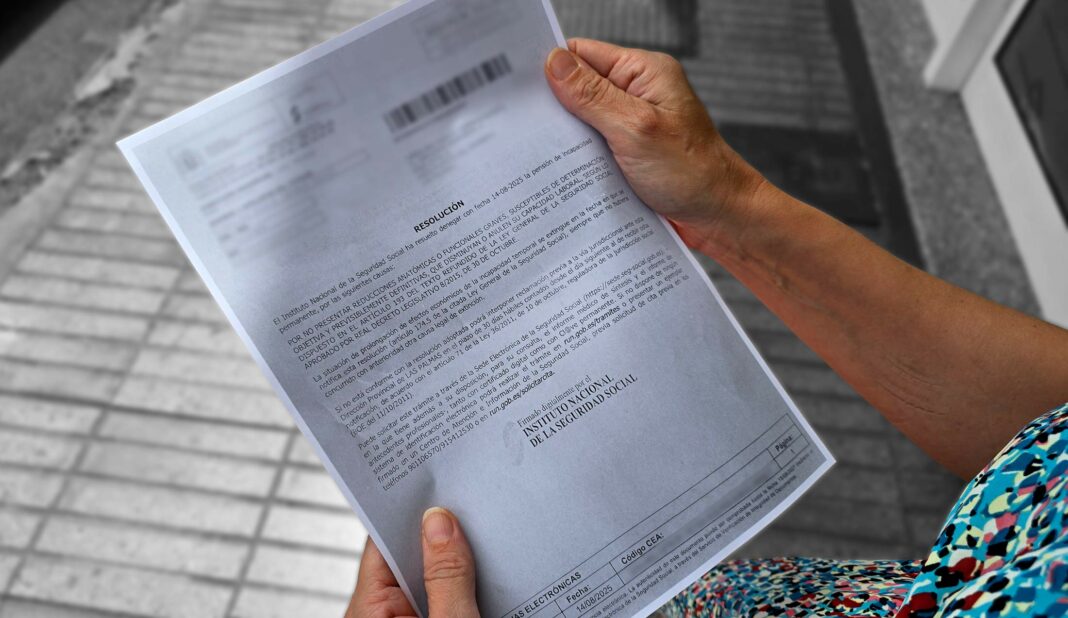 RESOLUCIÓN
El Instituto Nacional de la Seguridad Social ha resuelto denegar con fecha 14-08-2025 la pensión de incapacidad
permanente, por las siguientes causas:
POR NO PRESENTAR REDUCCIONES ANATÓMICAS O FUNCIONALES GRAVES, SUSCEPTIBLES DE DETERMINACIÓN
OBJETIVA Y PREVISIBLEMENTE DEFINITIVAS, QUE DISMINUYAN O ANULEN SU CAPACIDAD LABORAL, SEGÚN LO
DISPUESTO EN EL ARTÍCULO 193 DEL TEXTO REFUNDIDO DE LA LEY GENERAL DE LA SEGURIDAD SOCIAL,
APROBADO POR REAL DECRETO LEGISLATIVO 8/2015, DE 30 DE OCTUBRE.
La situación de prolongación de efectos económicos de la incapacidad temporal se extingue en la fecha en que se
notifica esta resolución (artículo 174.5 de la citada Ley General de la Seguridad Social), siempre que no hubiera
concurrido con anterioridad otra causa legal de extinción.
Si no está conforme con la resolución adoptada podrá interponer reclamación previa a la vía jurisdiccional ante esta
Dirección Provincial de LAS PALMAS en el plazo de 30 días hábiles contados desde el día siguiente al de recibir esta
notificación, de acuerdo con el artículo 71 de la Ley 36/2011, de 10 de octubre, reguladora de la jurisdicción social
(BOE del 11/10/2011).
Puede solicitar este trámite a través de la Sede Electrónica de la Seguridad Social, (https://sede.seg-social.gob.es),
en la que tiene además a su disposición, para su consulta, el informe médico de síntesis y el informe de
antecedentes profesionales, tanto con certificado digital como con Cl@ve permanente. Si no dispone de ningún
sistema de identificación electrónico podrá realizar el trámite en run.gob.es/tramites o presentar un ejemplar
firmado en un Centro de Atención e Información de la Seguridad Social, previa solicitud de cita previa en los
teléfonos 901106570/915412530 o en run.gob.es/solicitarcita.
Firmado digitalmente por el
INSTITUTO NACIONAL
DE LA SEGURIDAD SOCIAL
ELECTRÓNICAS
Fecha:
14/08/2025
Código CEA:
Página:
1
electrónica. La autenticidad de este documento puede ser comprobada hasta la fecha
de la Seguridad Social, a través del Servicio de Verificación de Integridad de Documentos